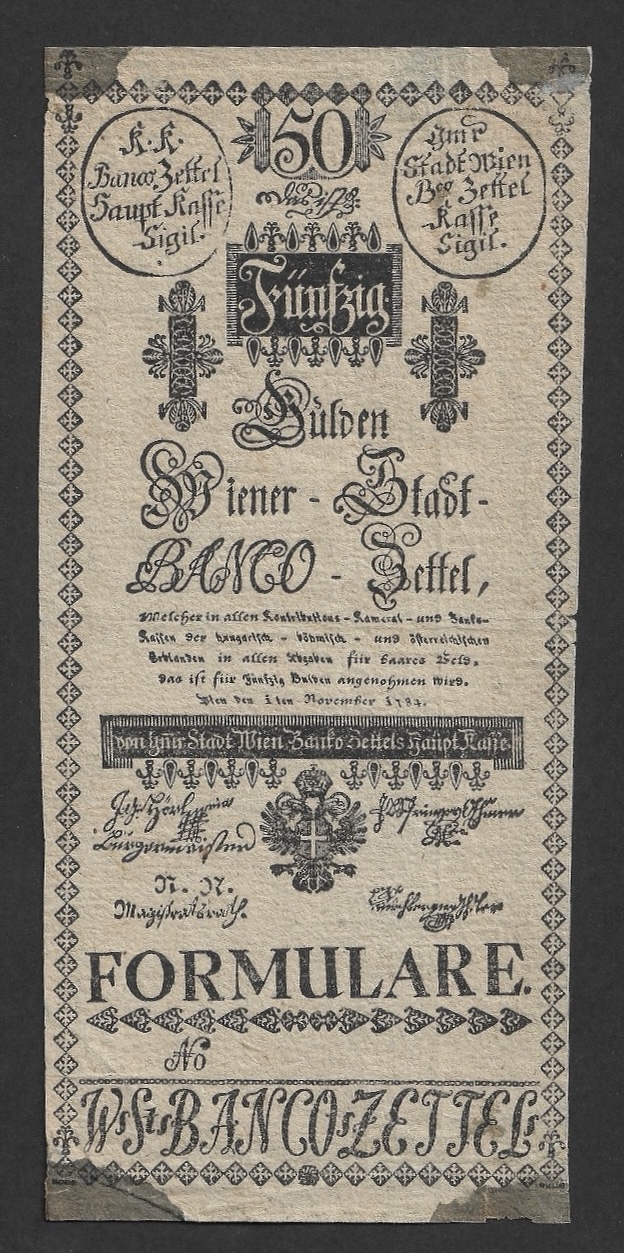 K. K.
Banco Zettel
Haupt Kasse
Sigil.
50
das ist:
Gmr
Stadt Wien
Bco Zettel
Kasse
Sigil.
Fünfzig
Gulden
Wiener - Stadt-
BANCO - Zettel,
Welcher in allen Kontributions - Kameral - und Banko-
Kassen der hungarisch - böhmisch - und österreichischen
Erblanden in allen Abgaben für baares Geld,
das ist für Fünfzig Gulden angenohmen wird.
Wien den 1ten November 1784.
von Gmr Stadt Wien Banko Zettels Haupt Kasse.
Bürgermeister
N. N.
Magistratsrath.
FORMULARE.
No
W.Sts BANCO ZETTEL